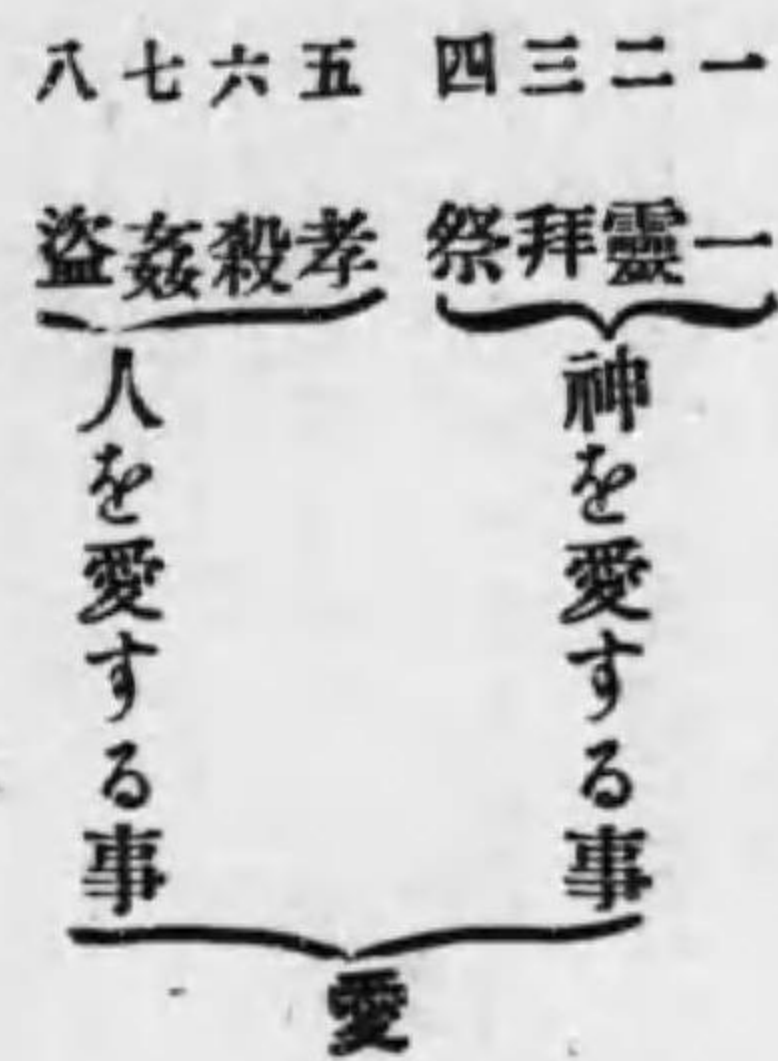 一 二 三 四 五 六 七 八
一 靈 拜 祭 孝 殺 姦 盜
神を愛する事
人を愛する事
愛